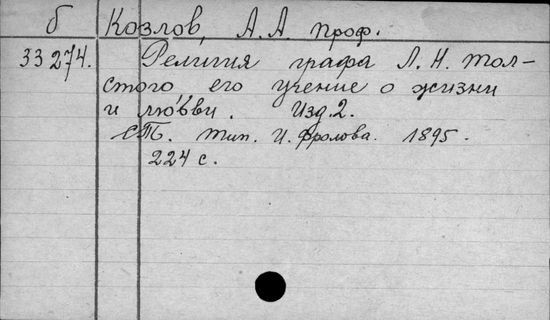 б Козлов, А. А. проф.
33274. Религия графа Л. Н. Тол-
стого его учение о жизни
и любви. Изд. 2.
СПБ. Тип. И. Фролова. 1895.
224 с.